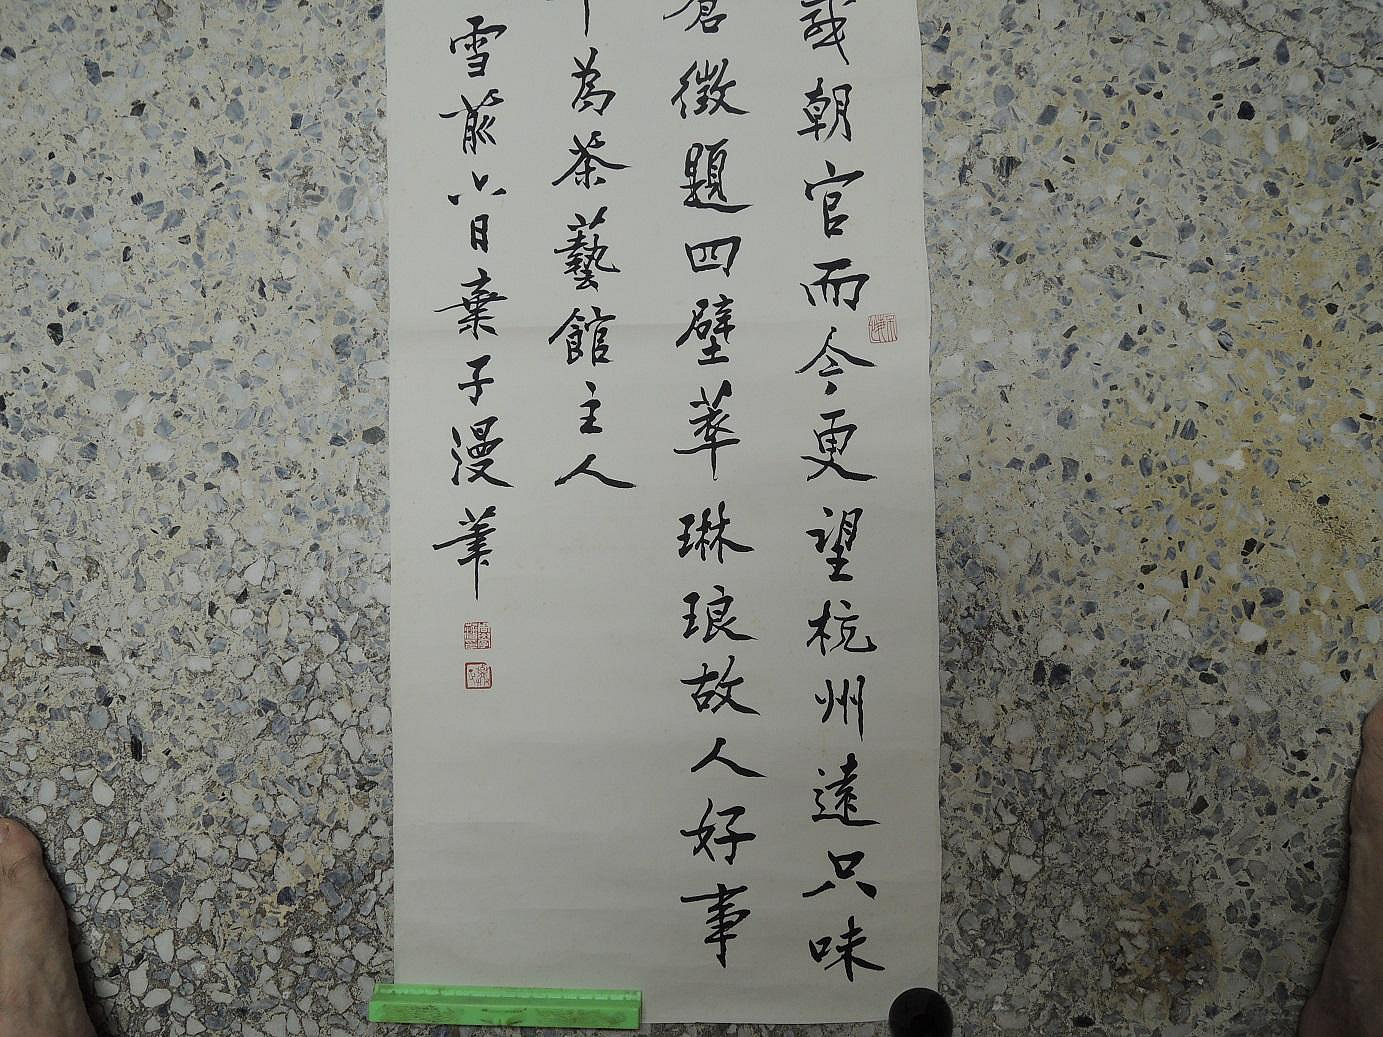 朝官而今更望杭州遠只味
徵題四壁萃琳琅故人好事
為茶藝館主人
雪前六日棄子漫筆